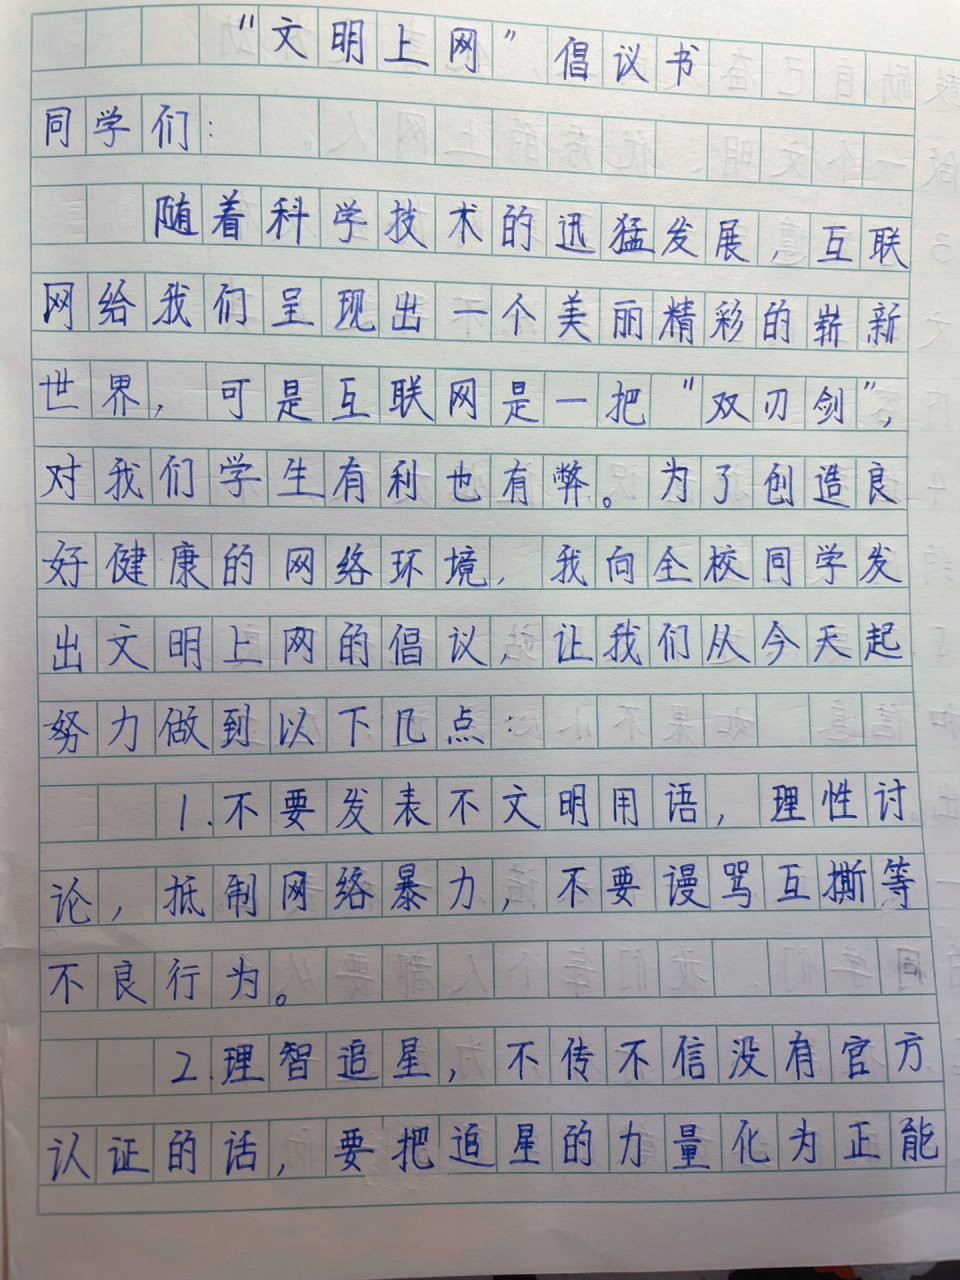 “文明上网”倡议书
同学们：
随着科学技术的迅猛发展，互联
网给我们呈现出一个美丽精彩的崭新
世界，可是互联网是一把“双刃剑”，
对我们学生有利也有弊。为了创造良
好健康的网络环境，我向全校同学发
出文明上网的倡议，让我们从今天起
努力做到以下几点：
1.不要发表不文明用语，理性讨
论，抵制网络暴力，不要谩骂互撕等
不良行为。
2.理智追星，不传不信没有官方
认证的话，要把追星的力量化为正能